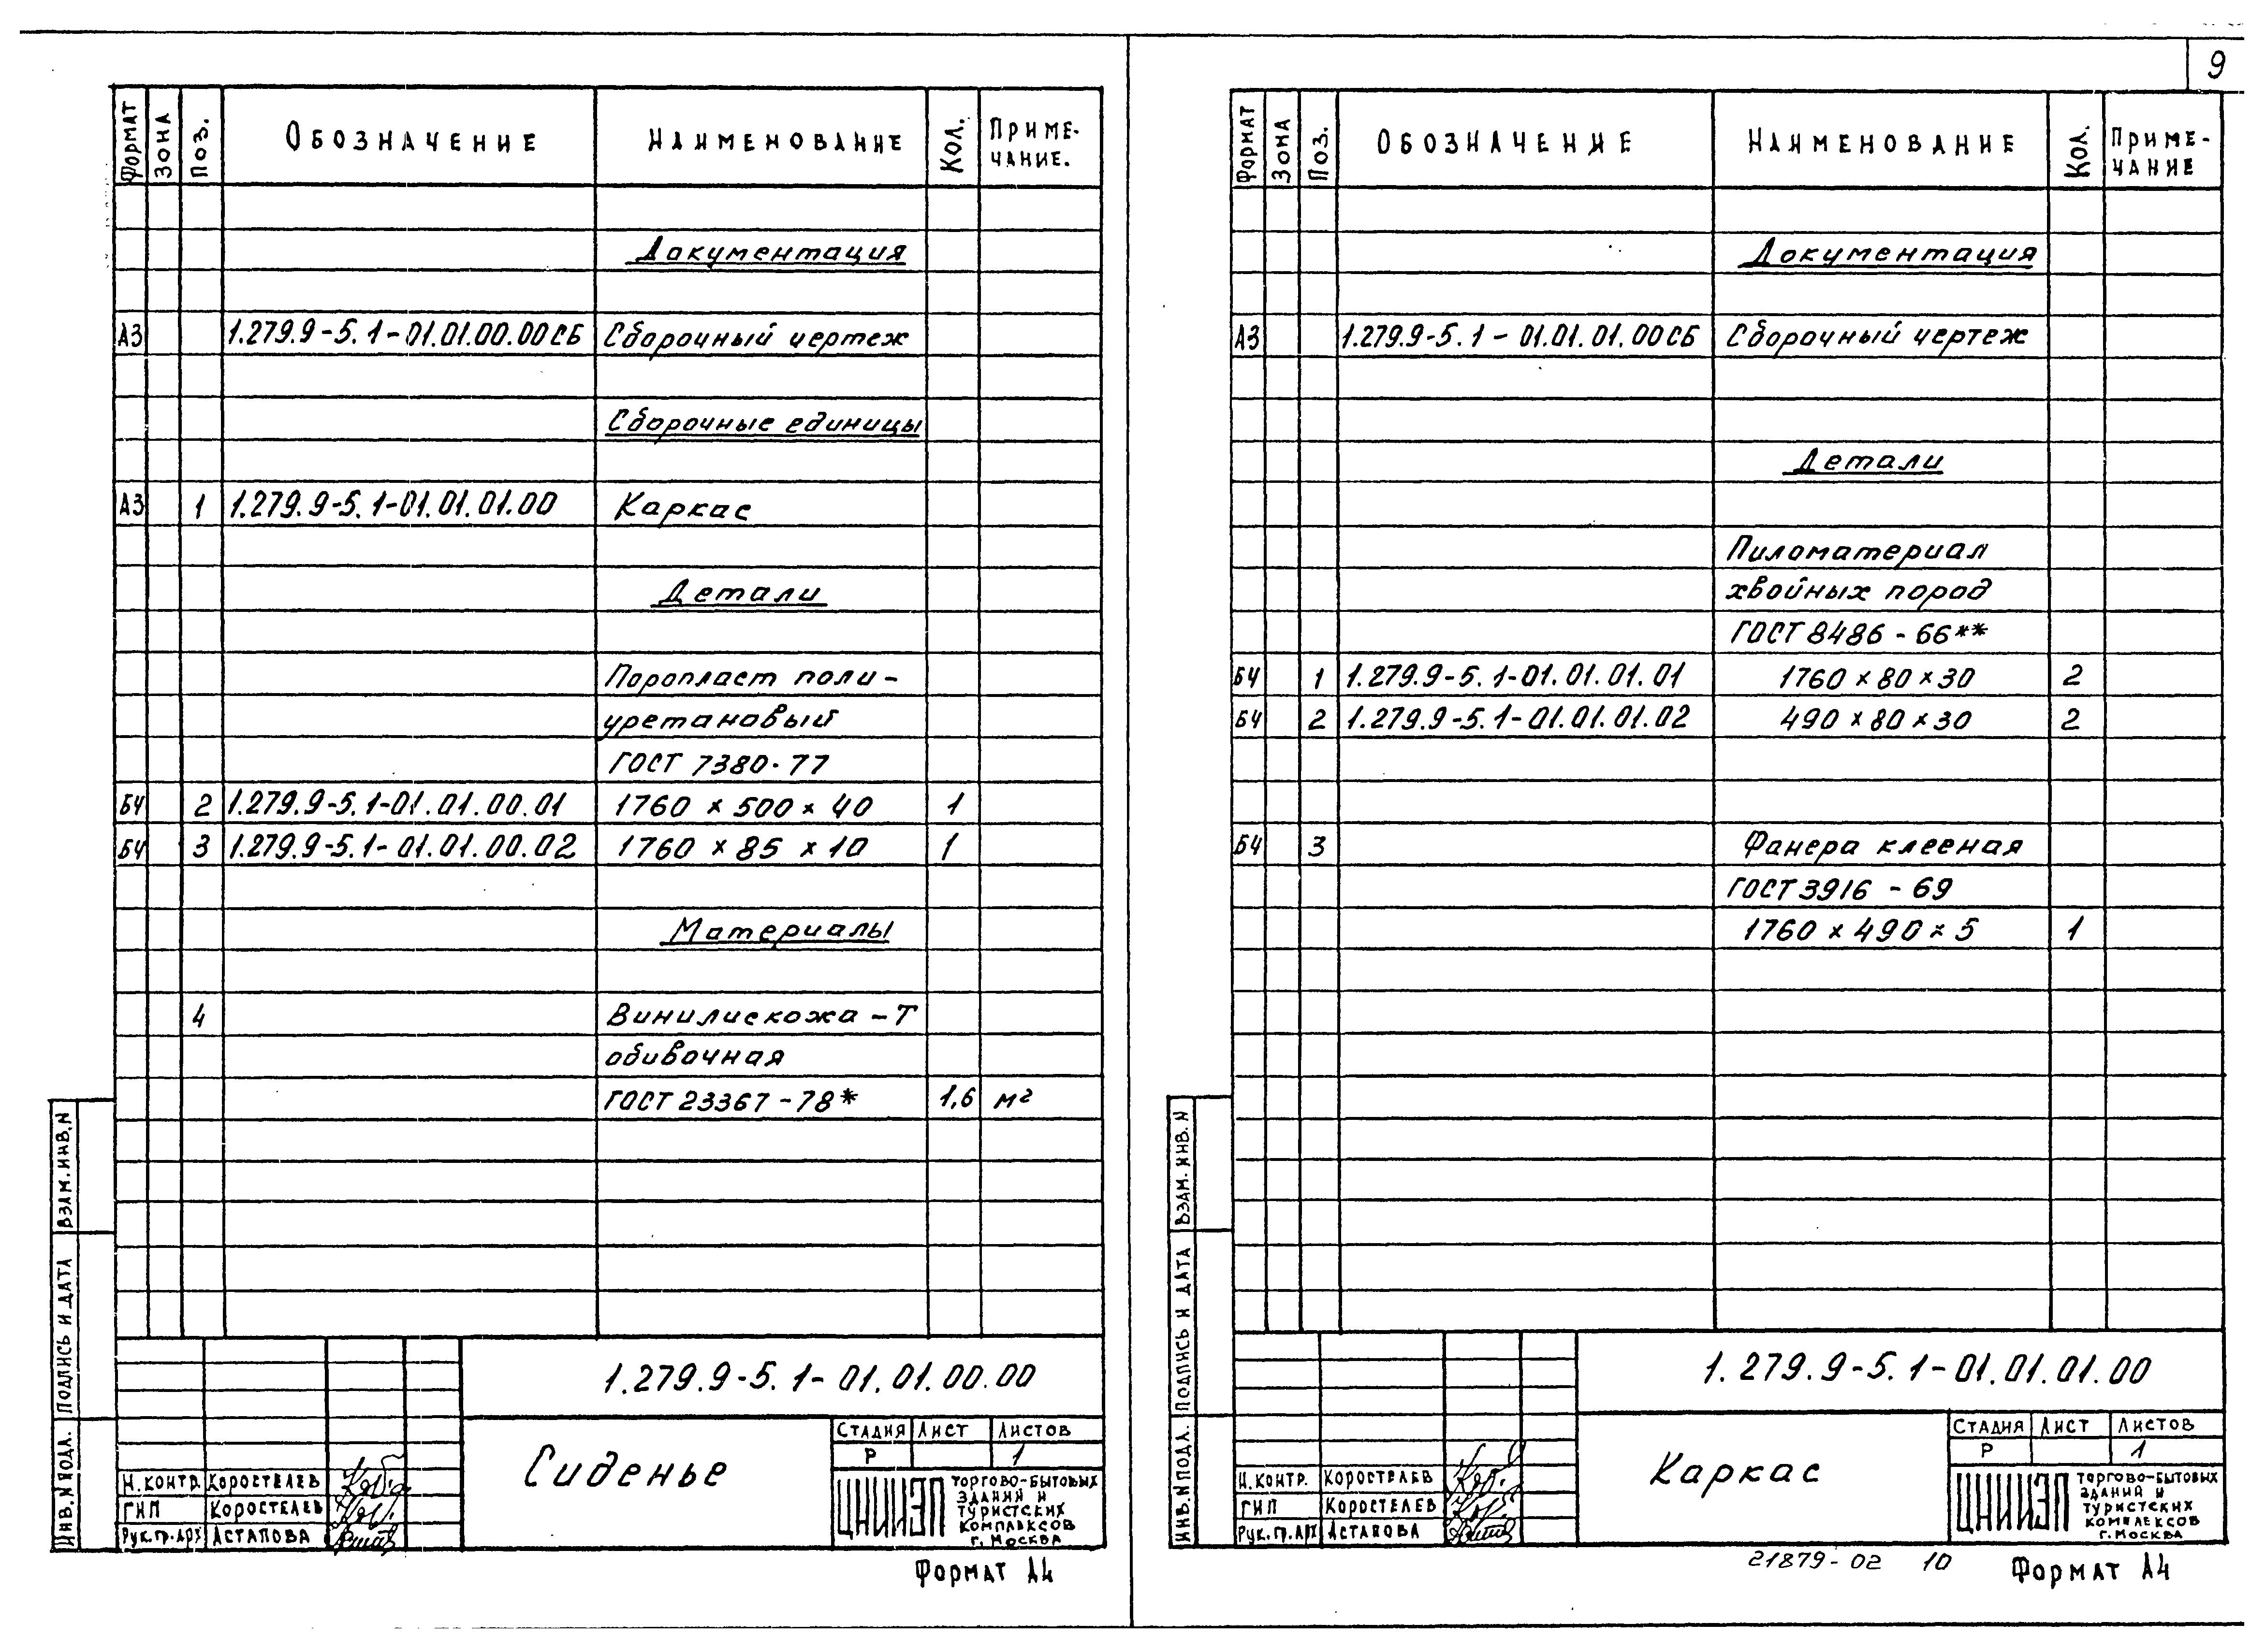 9
Формат Зона Поз. Обозначение Наименование Кол. Приме-
чание.
Документация
А3 1.279.9-5.1-01.01.00.00СБ Сборочный чертеж
Сборочные единицы
А3 1 1.279.9-5.1-01.01.01.00 Каркас
Детали
Поропласт поли-
уретановый
ГОСТ 7380-77
БЧ 2 1.279.9-5.1-01.01.00.01 1760 × 500 × 40 1
БЧ 3 1.279.9-5.1-01.01.00.02 1760 × 85 × 10 1
Материалы
4 Винилискожа-Т
обивочная
ГОСТ 23367-78* 1,6 м²
Взам.инв.N
Подпись и дата
Инв.N подл.
1.279.9-5.1-01.01.00.00
Сиденье
Стадия Лист Листов
Р 1
Н.контр. Коростелев
ГИП Коростелев
Рук.гр.арх Астапова
ЦНИИЭП торгово-бытовых
зданий и
туристских
комплексов
г. Москва
Формат А4
Формат Зона Поз. Обозначение Наименование Кол. Приме-
чание
Документация
А3 1.279.9-5.1-01.01.01.00СБ Сборочный чертеж
Детали
Пиломатериал
хвойных пород
ГОСТ 8486-66**
БЧ 1 1.279.9-5.1-01.01.01.01 1760 × 80 × 30 2
БЧ 2 1.279.9-5.1-01.01.01.02 490 × 80 × 30 2
БЧ 3 Фанера клееная
ГОСТ 3916-69
1760 × 490 × 5 1
Взам.инв.N
Подпись и дата
Инв.N подл.
1.279.9-5.1-01.01.01.00
Каркас
Стадия Лист Листов
Р 1
Н.контр. Коростелев
ГИП Коростелев
Рук.гр.арх Астапова
ЦНИИЭП торгово-бытовых
зданий и
туристских
комплексов
г. Москва
21879-02 10 Формат А4